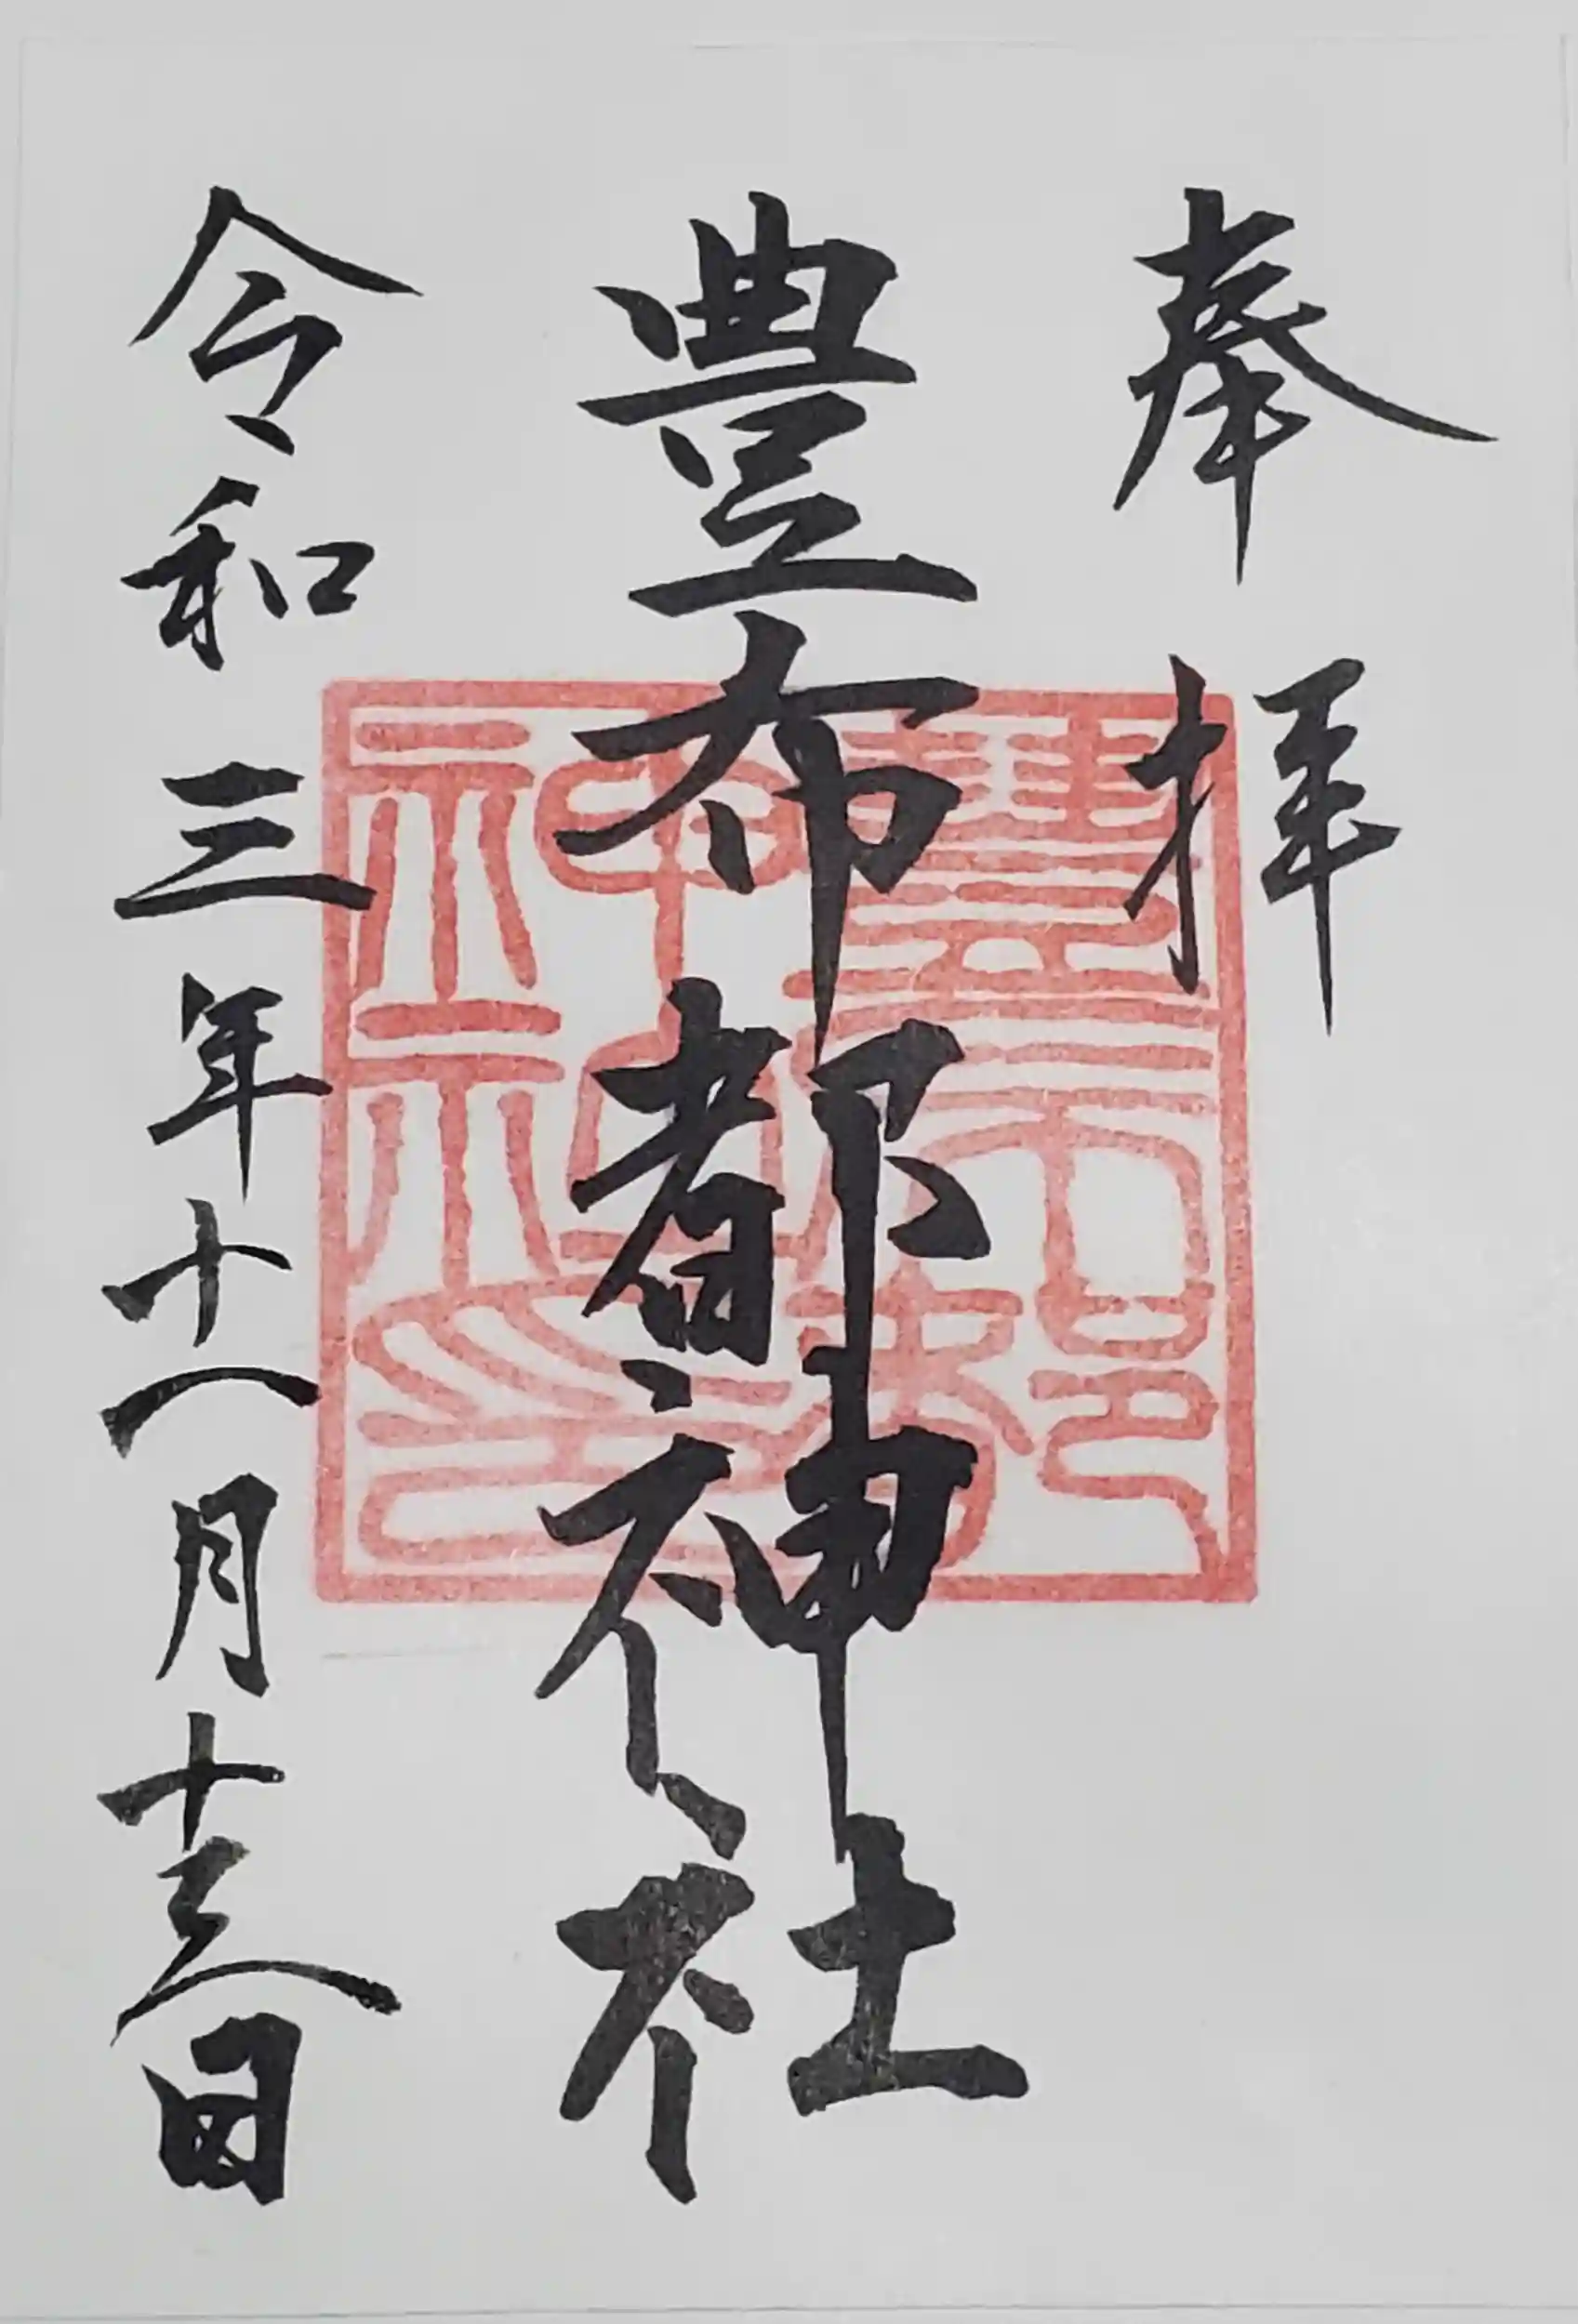 奉拝
豊布都神社
令和三年十一月十三日
豊布都神社印